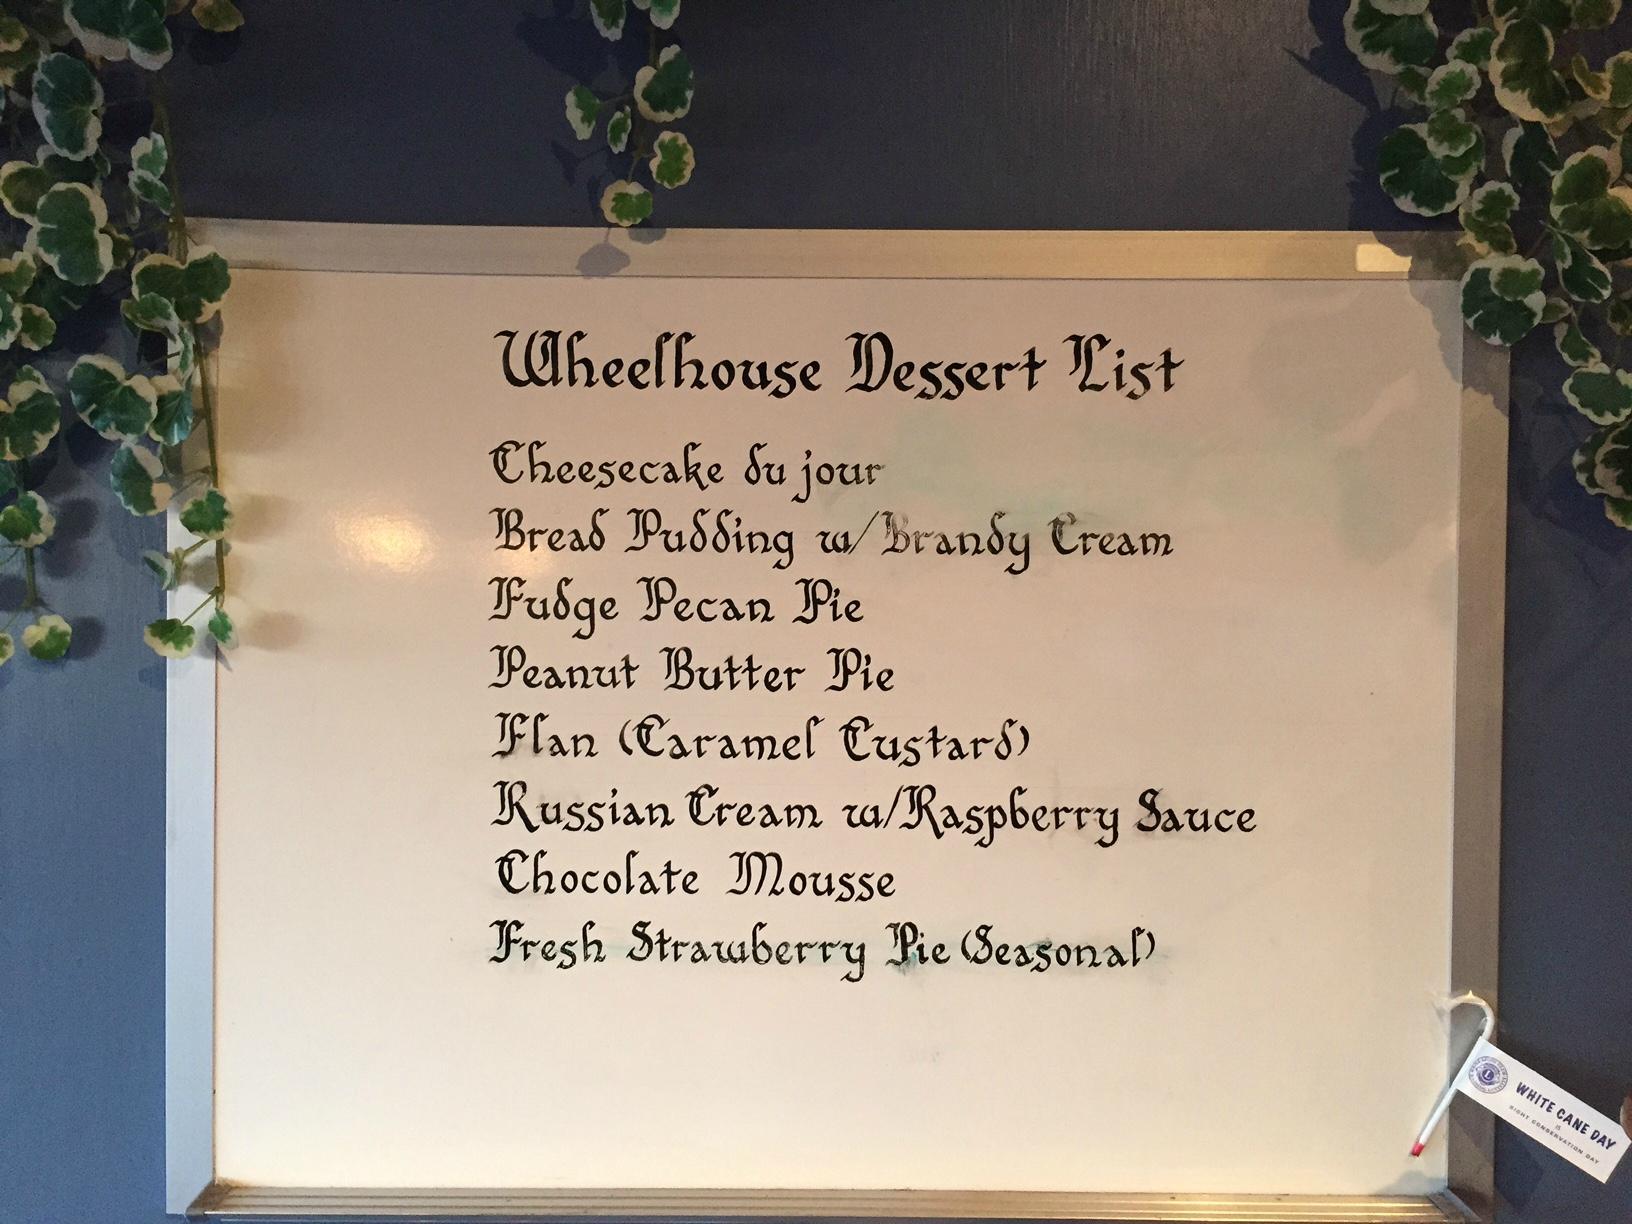 Wheelhouse Dessert List
Cheesecake du jour
Bread Pudding w/Brandy Cream
Fudge Pecan Pie
Peanut Butter Pie
Flan (Caramel Custard)
Russian Cream w/Raspberry Sauce
Chocolate Mousse
Fresh Strawberry Pie (Seasonal)
WHITE CANE DAY
IS
SIGHT CONSERVATION DAY